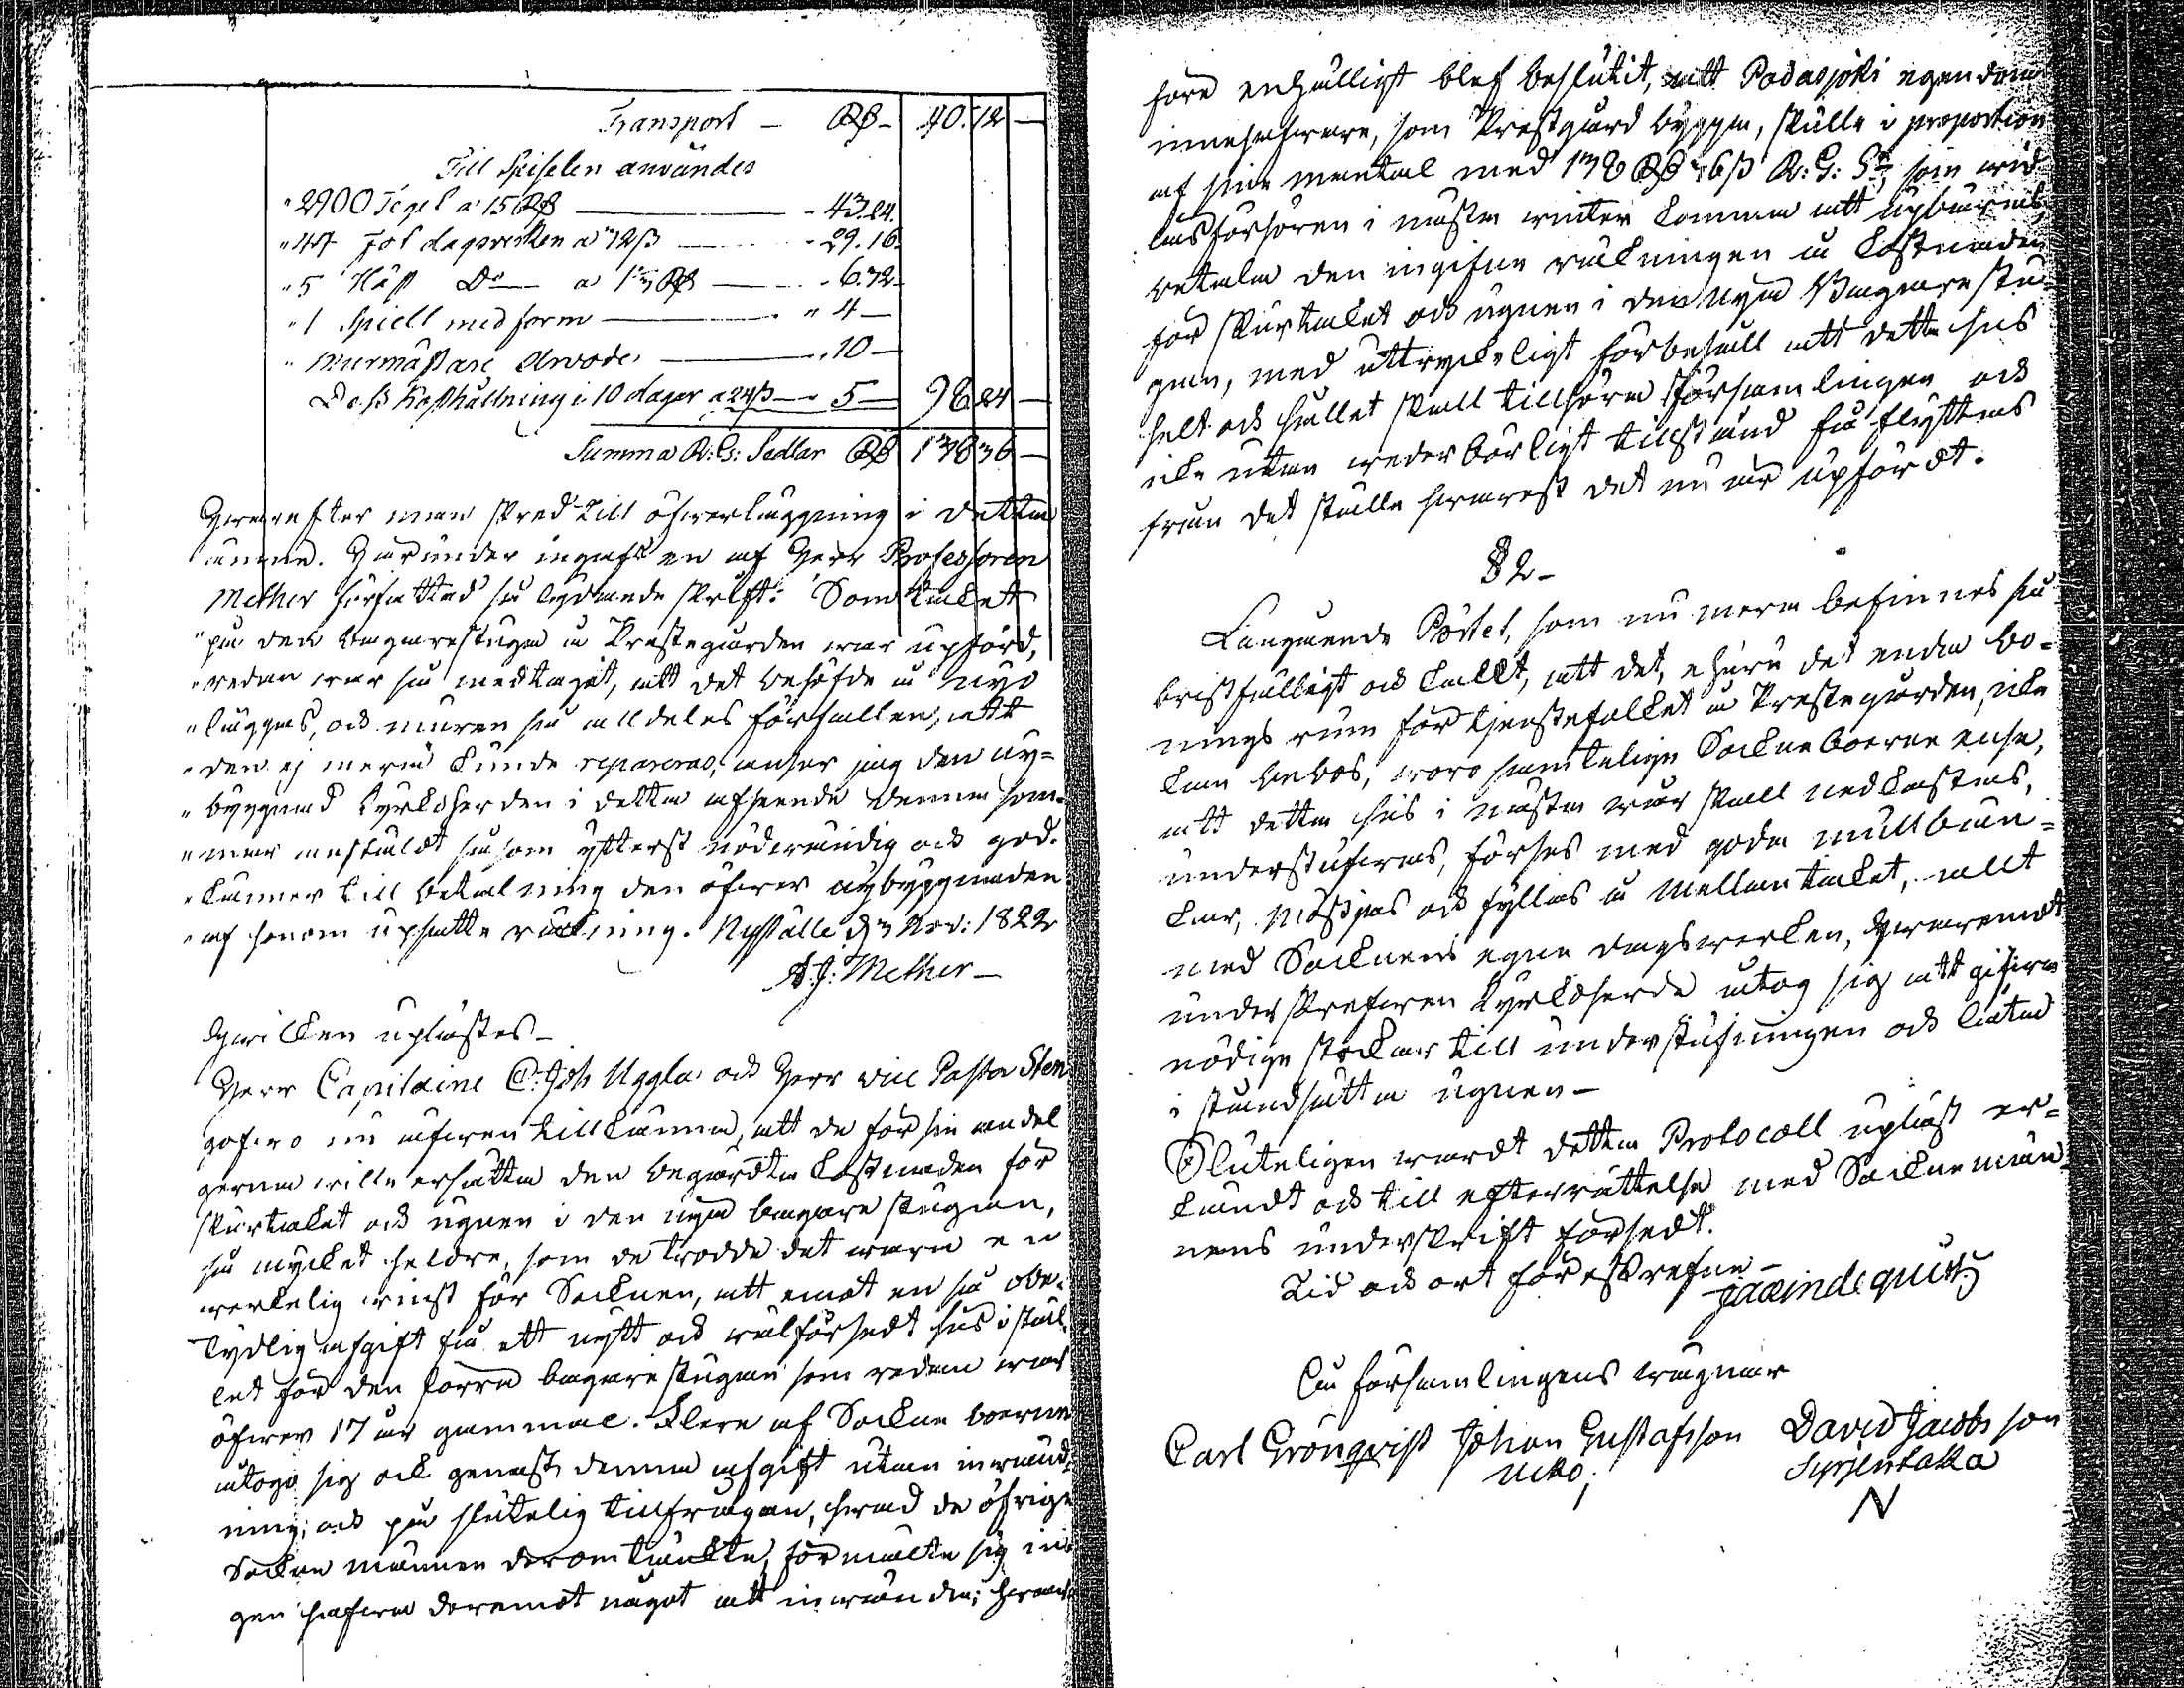 Transport — RB - 40. 12 —
Till Spiselen användes
" 2900 Tegel a 15 RB — - 43.24.
" 47 Jot dagsverken a 12ß — - 29.16.
" 5 Häst Do — a 1 RB — - 6.32
" 1 Spiell med form — " 4 —
" Murmästare Arvode — " 10 —
Dess Kosthållning i 10 dagar a 24ß — 5 — 98 24 —
Summa R: G: Sedlar RB 138 36 —
Hvarefter man skred till öfverläggning i detta
ämne. Härunder ingafs en af Herr Professoren
Mether författad så lydande skrift: Som taket
" på den bagarestuga å Prestegården war upförd,
" redan war så medtagit, att det behöfde å nyo
" läggas, och muren så alldeles förfallen, att
" den ej mera kunde repareras, anser jag den ny=
" byggnad Kyrkoherden i detta afseende denna som-
" mar anstäldt såsom ytterst nödvändig och god-
" känner till betalning den öfver nybyggnaden
" af honom upsatte räkning. Nyställe d. 3 Nov: 1822
A. J. Mether —
Hvilken uplästes —
Herr Capitaine C: Joh Uggla och Herr vice Pastor Sten
gofvo nu äfven tillkänna, att de för sin andel
gerna wille ersätta den begärdta kostnaden för
skurtaket och ugnen i den nya bagare stugan,
så mycket heldre, som de trodde det wara en
werkelig winst för Socknen, att emot en så obe-
tydlig afgift få ett nytt och wälförsedt hus i stäl-
let för den förra bagarestugan som redan war
öfver 17 år gammal. Flere af Sockne boerne
åtogo sig ock genast denna afgift utan inwänd-
ning, och på slutelig tillfrågan, hwad de öfrige
Sockne männen derom tänkte, förmälte sig in-
gen hafva deremot något att inwända; hwar-
före enhälligt blef beslutit, att Padasjoki egendom
innehafvare, som Prestgård bygga, skulle i proportion
af sine mantal med 138 RB 36ß R: G: Sr som wid
läsförhören i nästa winter komma att upbäras,
betala den ingifne räkningen å kostnaden
för skurtaket och ugnen i den nya Bagarestu-
gan, med uttryckeligt förbehåll att detta hus
helt och hållet skall tillhöra församlingen och
icke utan wederbörligt tillstånd få flyttas
från det ställe hwarest det nu är upfördt.
§ 2 —
Langmende Pörtet, som nu mera befinnes så
bristfälligt och kallt, att det, ehuru det enda bo-
nings rum för tjenstefolket å Prestegården, icke
kan bebos, woro samtelige Sockneboerne ense,
att detta hus i nästa wår skall nedkastas,
understufvas, förses med goda mullbän-
kar, mossjas och fyllas å mellantaket, allt
med Socknens egne dagswerken, hwaremot
underskrefven Kyrkoherde åtog sig att gifva
nödige stockar till understufningen och låta
i ståndsätta ugnen —
Sluteligen wardt detta Protocoll upläst er-
kändt och till efterrättelse med Sockne män-
nens underskrift försedt.
Tid och ort förskrefne —
På församlingens wägnar
Carl Grönqvist Johan Gustafsson David Jacobs son
Syrjentaka
N